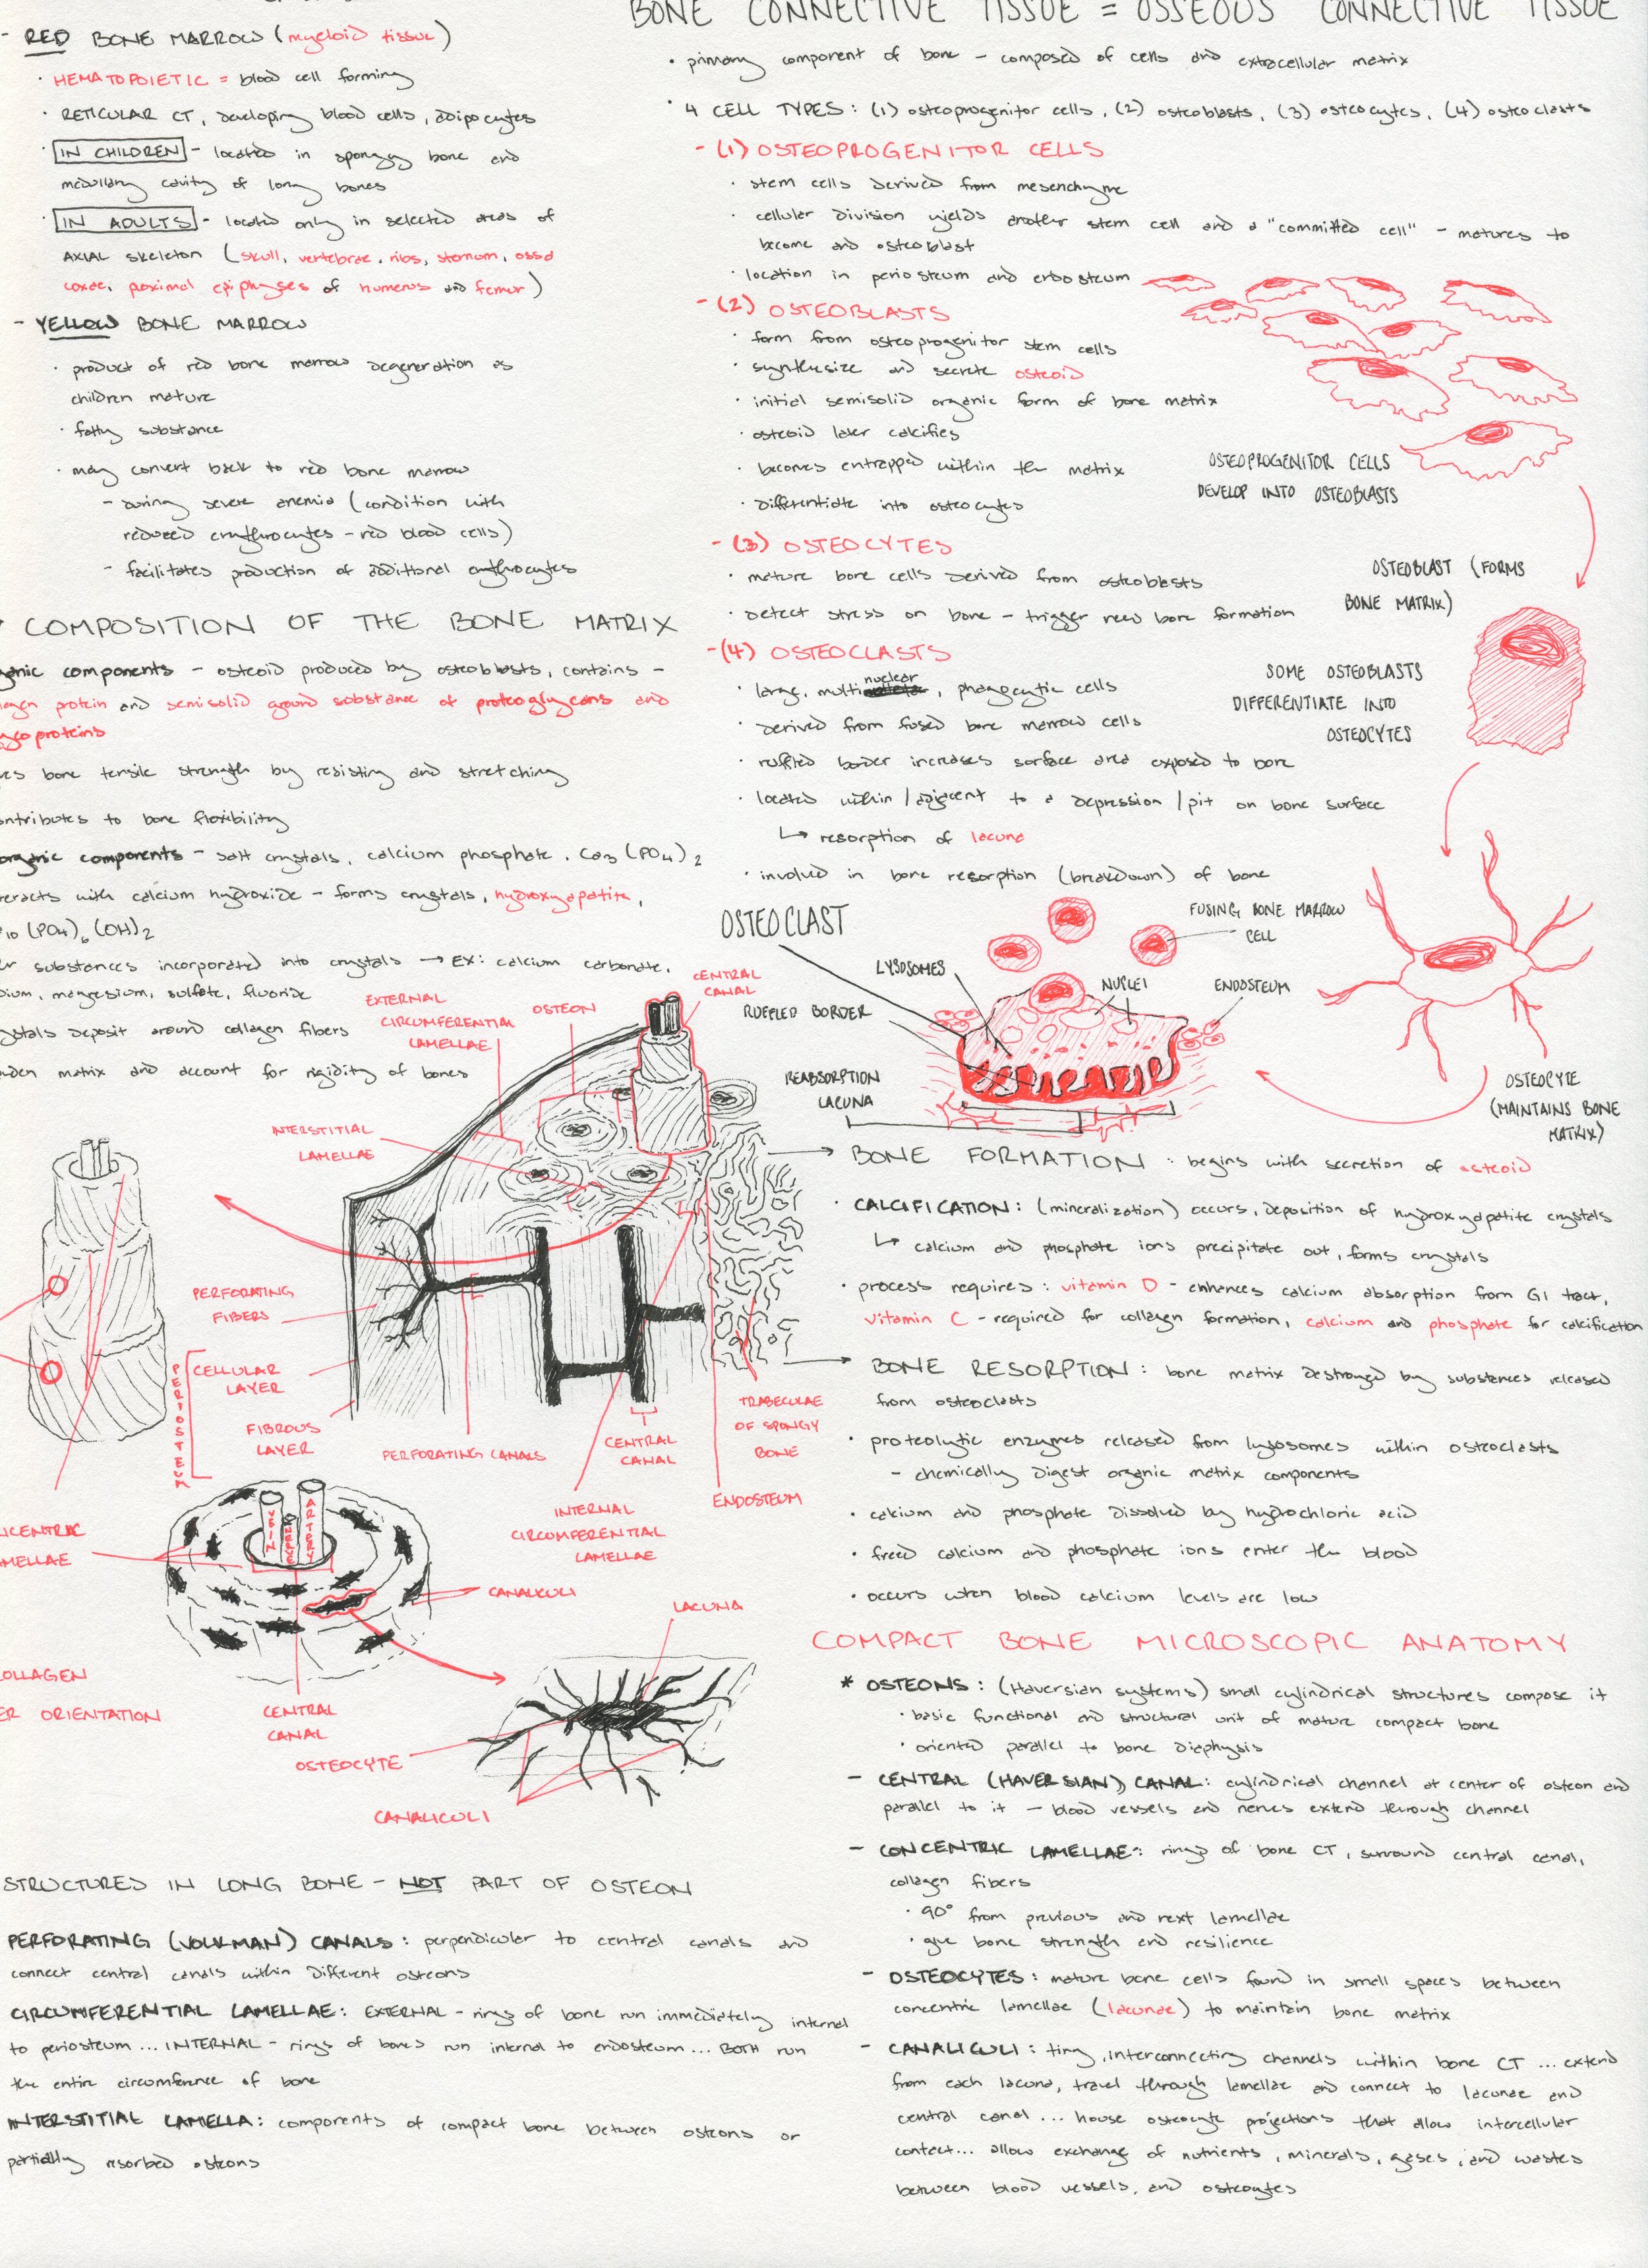 - RED BONE MARROW (myeloid tissue)
· HEMATOPOIETIC = blood cell forming
· RETICULAR CT, developing blood cells, adipocytes
· IN CHILDREN - located in spongy bone and
medullary cavity of long bones
· IN ADULTS - located only in selected areas of
AXIAL skeleton (skull, vertebrae, ribs, sternum, ossa
coxae, proximal epiphyses of humerus and femur)
- YELLOW BONE MARROW
· product of red bone marrow degeneration as
children mature
· fatty substance
· may convert back to red bone marrow
- during severe anemia (condition with
reduced erythrocytes - red blood cells)
- facilitates production of additional erythrocytes
COMPOSITION OF THE BONE MATRIX
components - osteoid produced by osteoblasts, contains -
protein and semisolid ground substance of proteoglycans and
bone tensile strength by resisting and stretching
to bone flexibility
components - salt crystals, calcium phosphate, Ca3 (PO4) 2
with calcium hydroxide - forms crystals, hydroxyapatite,
10 (PO4)6 (OH)2
substances incorporated into crystals → EX: calcium carbonate,
magnesium, sulfate, fluoride
deposit around collagen fibers
matrix and account for rigidity of bones
EXTERNAL
CIRCUMFERENTIAL
LAMELLAE
OSTEON
CENTRAL
CANAL
INTERSTITIAL
LAMELLAE
PERFORATING
FIBERS
PERIOSTEUM
CELLULAR
LAYER
FIBROUS
LAYER
PERFORATING CANALS
CENTRAL
CANAL
TRABECULAE
OF SPONGY
BONE
ENDOSTEUM
INTERNAL
CIRCUMFERENTIAL
LAMELLAE
VEIN
NERVE
ARTERY
CANALICULI
LACUNA
ORIENTATION
CENTRAL
CANAL
OSTEOCYTE
CANALICULI
STRUCTURES IN LONG BONE - NOT PART OF OSTEON
PERFORATING (VOLKMAN) CANALS: perpendicular to central canals and
connect central canals within different osteons
CIRCUMFERENTIAL LAMELLAE: EXTERNAL - rings of bone run immediately internal
to periosteum ... INTERNAL - rings of bones run internal to endosteum ... BOTH run
the entire circumference of bone
INTERSTITIAL LAMELLA: components of compact bone between osteons or
partially resorbed osteons
BONE CONNECTIVE TISSUE = OSSEOUS CONNECTIVE TISSUE
· primary component of bone - composed of cells and extracellular matrix
· 4 CELL TYPES: (1) osteoprogenitor cells, (2) osteoblasts, (3) osteocytes, (4) osteoclasts
- (1) OSTEOPROGENITOR CELLS
· stem cells derived from mesenchyme
· cellular division yields another stem cell and a "committed cell" - matures to
become and osteoblast
· location in periosteum and endosteum
- (2) OSTEOBLASTS
· form from osteoprogenitor stem cells
· synthesize and secrete osteoid
· initial semisolid organic form of bone matrix
· osteoid later calcifies
· becomes entrapped within the matrix
· differentiate into osteocytes
OSTEOPROGENITOR CELLS
DEVELOP INTO OSTEOBLASTS
- (3) OSTEOCYTES
· mature bone cells derived from osteoblasts
· detect stress on bone - trigger new bone formation
OSTEOBLAST (FORMS
BONE MATRIX)
- (4) OSTEOCLASTS
· large, multinuclear, phagocytic cells
· derived from fused bone marrow cells
· ruffled border increases surface area exposed to bone
· located within / adjacent to a depression / pit on bone surface
↳ resorption of lacuna
· involved in bone resorption (breakdown) of bone
SOME OSTEOBLASTS
DIFFERENTIATE INTO
OSTEOCYTES
OSTEOCLAST
FUSING BONE MARROW
CELL
LYSOSOMES
NUCLEI
ENDOSTEUM
RUFFLED BORDER
REABSORPTION
LACUNA
OSTEOCYTE
(MAINTAINS BONE
MATRIX)
→ BONE FORMATION: begins with secretion of osteoid
· CALCIFICATION: (mineralization) occurs, deposition of hydroxyapatite crystals
↳ calcium and phosphate ions precipitate out, forms crystals
· process requires: vitamin D - enhances calcium absorption from GI tract,
vitamin C - required for collagen formation, calcium and phosphate for calcification
→ BONE RESORPTION: bone matrix destroyed by substances released
from osteoclasts
· proteolytic enzymes released from lysosomes within osteoclasts
- chemically digest organic matrix components
· calcium and phosphate dissolved by hydrochloric acid
· freed calcium and phosphate ions enter the blood
· occurs when blood calcium levels are low
COMPACT BONE MICROSCOPIC ANATOMY
* OSTEONS: (Haversian systems) small cylindrical structures compose it
· basic functional and structural unit of mature compact bone
· oriented parallel to bone diaphysis
- CENTRAL (HAVERSIAN) CANAL: cylindrical channel at center of osteon and
parallel to it - blood vessels and nerves extend through channel
- CONCENTRIC LAMELLAE: rings of bone CT, surround central canal,
collagen fibers
· 90° from previous and next lamellae
· give bone strength and resilience
- OSTEOCYTES: mature bone cells found in small spaces between
concentric lamellae (lacunae) to maintain bone matrix
- CANALICULI: tiny, interconnecting channels within bone CT ... extend
from each lacuna, travel through lamellae and connect to lacunae and
central canal ... house osteocyte projections that allow intercellular
contact... allow exchange of nutrients, minerals, gases, and wastes
between blood vessels, and osteocytes